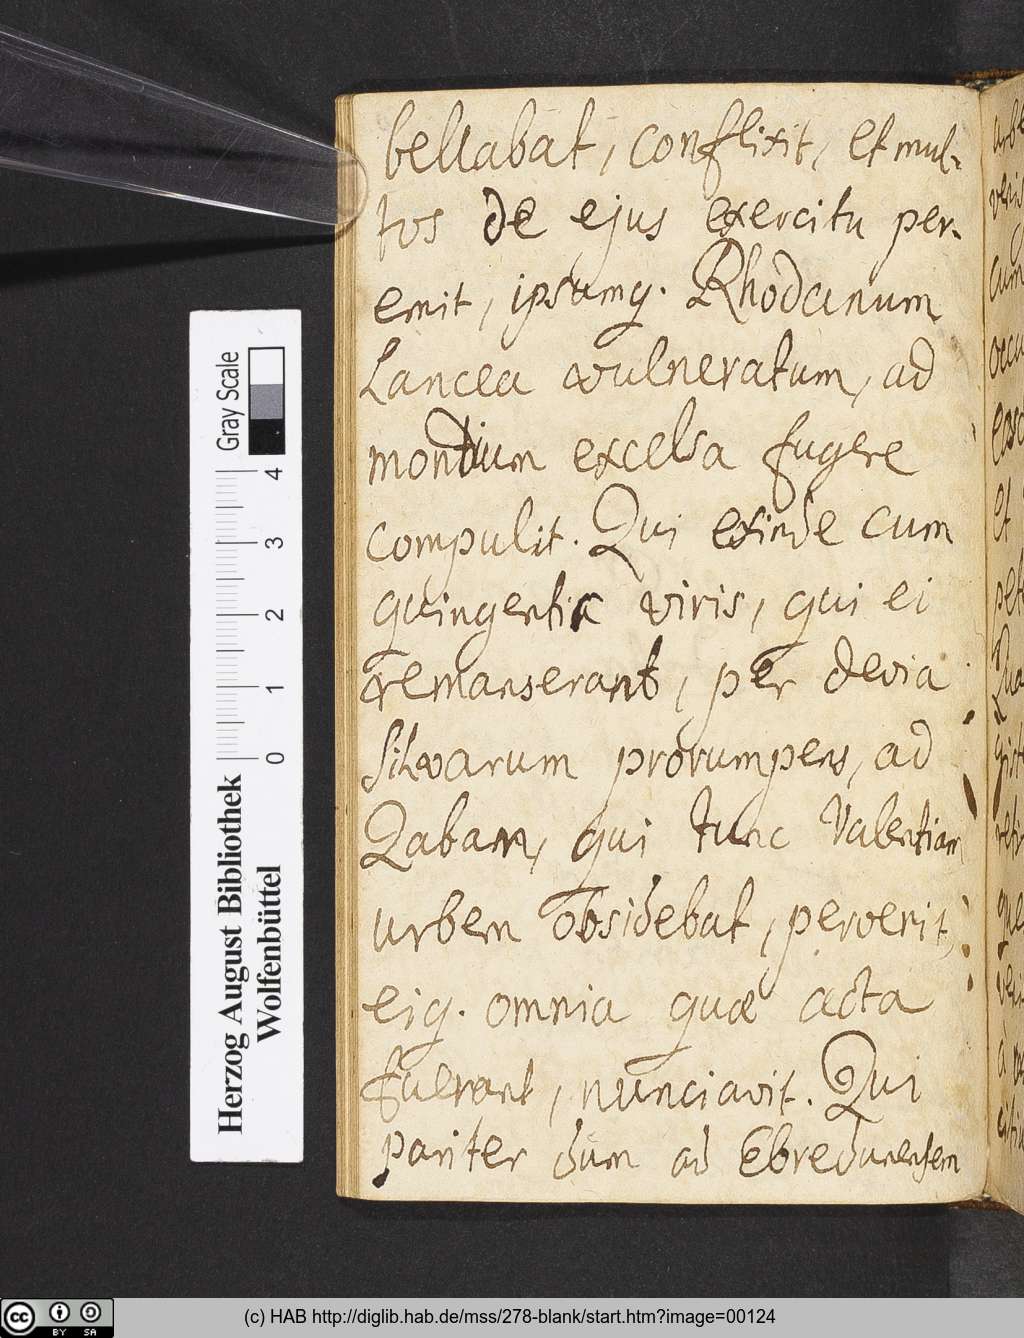 bellabat, conflixit, et mul-
tos de ejus exercitu per-
emit, ipsumq. Rhodanum
Lancea vulneratum, ad
montium excelsa fugere
compulit. Qui exinde cum
quingentis viris, qui ei
remanserant, per devia
Silvarum prorumpens, ad
Zabam, qui tunc Valentiam
urbem obsidebat, pervenit,
eiq. omnia quæ acta
fuerant, nunciavit. Qui
pariter dum ad Ebredunensem
Herzog August Bibliothek
Wolfenbüttel
Gray Scale
0 1 2 3 4
(c) HAB http://diglib.hab.de/mss/278-blank/start.htm?image=00124
cc BY SA